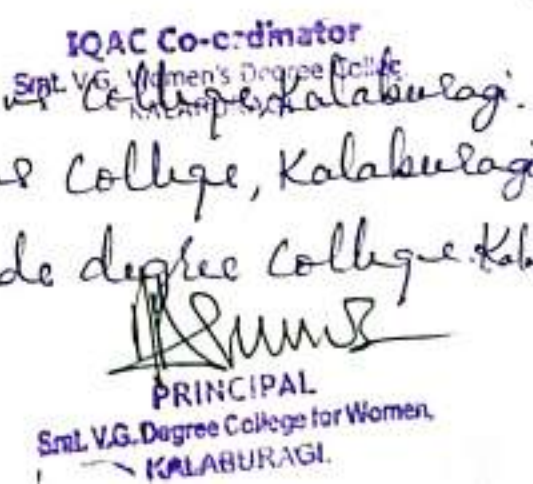 IQAC Co-ordinator
Smt. V.G. Women's Degree College
College, Kalaburagi.
College, Kalaburagi
de degree College. Kal
PRINCIPAL
Smt. V.G. Degree College for Women,
KALABURAGI.